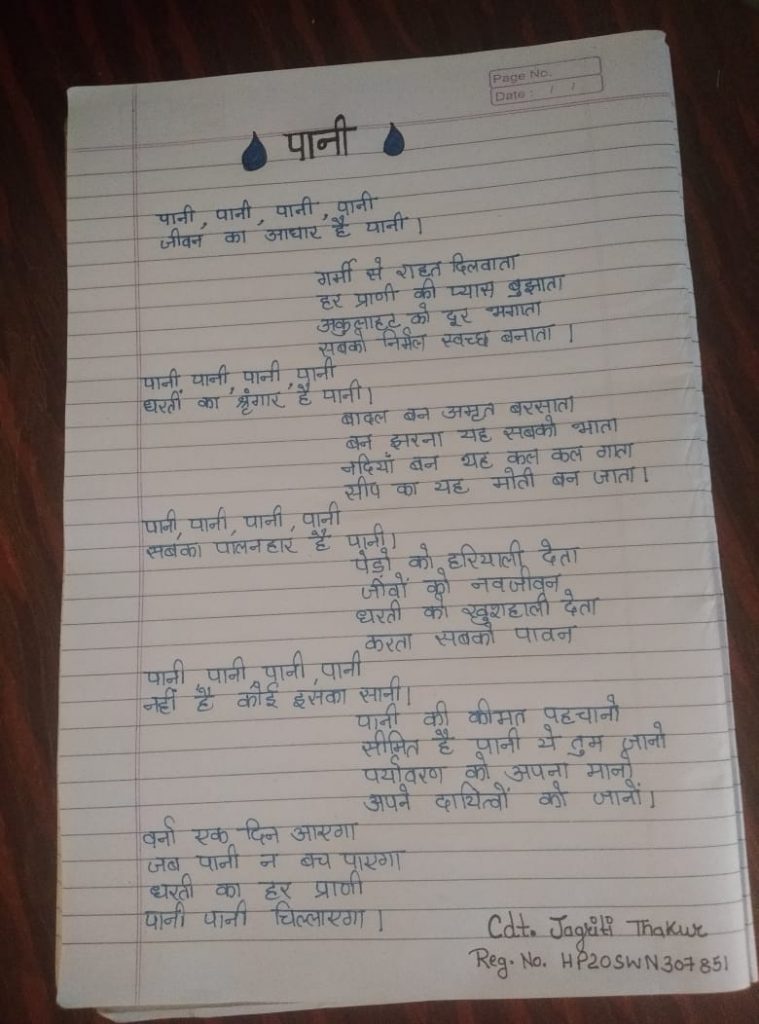 Page No.
Date : / /
पानी
पानी, पानी, पानी, पानी
जीवन का आधार है पानी।
गर्मी से राहत दिलवाता
हर प्राणी की प्यास बुझाता
अकुलाहट को दूर भगाता
सबको निर्मल स्वच्छ बनाता।
पानी पानी, पानी, पानी
धरती का श्रृंगार है पानी।
बादल बन अमृत बरसाता
बन झरना यह सबको भाता
नदियाँ बन यह कल कल गाता
सीप का यह मोती बन जाता।
पानी, पानी, पानी, पानी
सबका पालनहार है पानी।
पेड़ो को हरियाली देता
जीवों को नवजीवन
धरती को खुशहाली देता
करता सबको पावन
पानी पानी पानी, पानी
नहीं है कोई इसका सानी।
पानी की कीमत पहचानो
सीमित है पानी ये तुम जानो
पर्यावरण को अपना मानो
अपने दायित्वों को जानों।
वर्ना एक दिन आएगा
जब पानी न बच पाएगा
धरती का हर प्राणी
पानी पानी चिल्लाएगा।
Cdt. Jagriti Thakur
Reg. No. HP20SWN307851